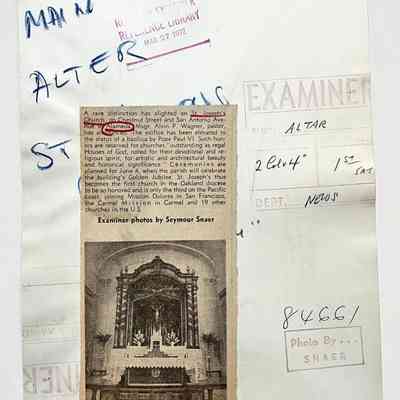 MAIN
ALTER
ST
REFERENCE LIBRARY
MAR 27 1972
A rare distinction has alighted on St. Joseph's
Church, on Chestnut Street and San Antonio Ave-
Alameda. Msgr. Alvin P. Wagner, pastor,
has the edifice has been elevated to
the status of a basilica by Pope Paul VI. Such hon-
ors are reserved for churches, "outstanding as regal
Houses of God, noted for their devotional and re-
ligious spirit, for artistic and architectural beauty
and historical significance." Ceremonies are
planned for June 4, when his parish will celebrate
the building's Golden Jubilee. St. Joseph's thus
becomes the first church in the Oakland diocese
to be so honored and is only the third on the Pacific
coast, joining Mission Dolores in San Francisco,
the Carmel Mission in Carmel and 19 other
churches in the U.S.
Examiner photos by Seymour Snaer
EXAMINER
ALTAR
1 ST
SAT
DEPT. NEWS
84661
Photo By . . .
SNAER